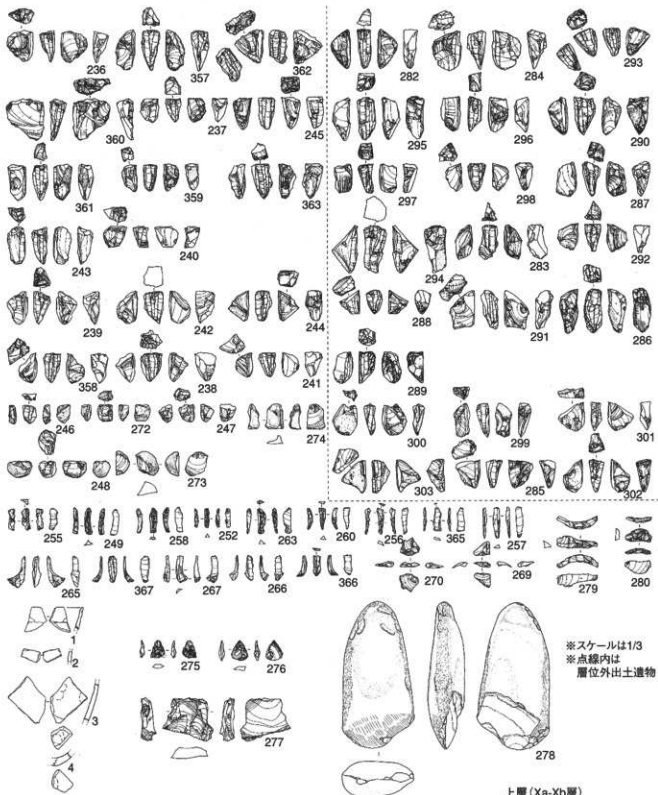 236 357 362 282 284 293
360 237 245 295 296 290
361 359 363 297 298 287
243 240 294 283 292
239 242 244 288 291 286
358 238 241 289
246 272 247 274 300 299 301
248 273 303 285 302
255 249 258 252 263 260 256 365 257
265 367 267 266 366 270 269 279 280
1
2
3
4
275 276
277
278
※スケールは1/3
※点線内は
層位外出土遺物
上層(Xa-Xb層)